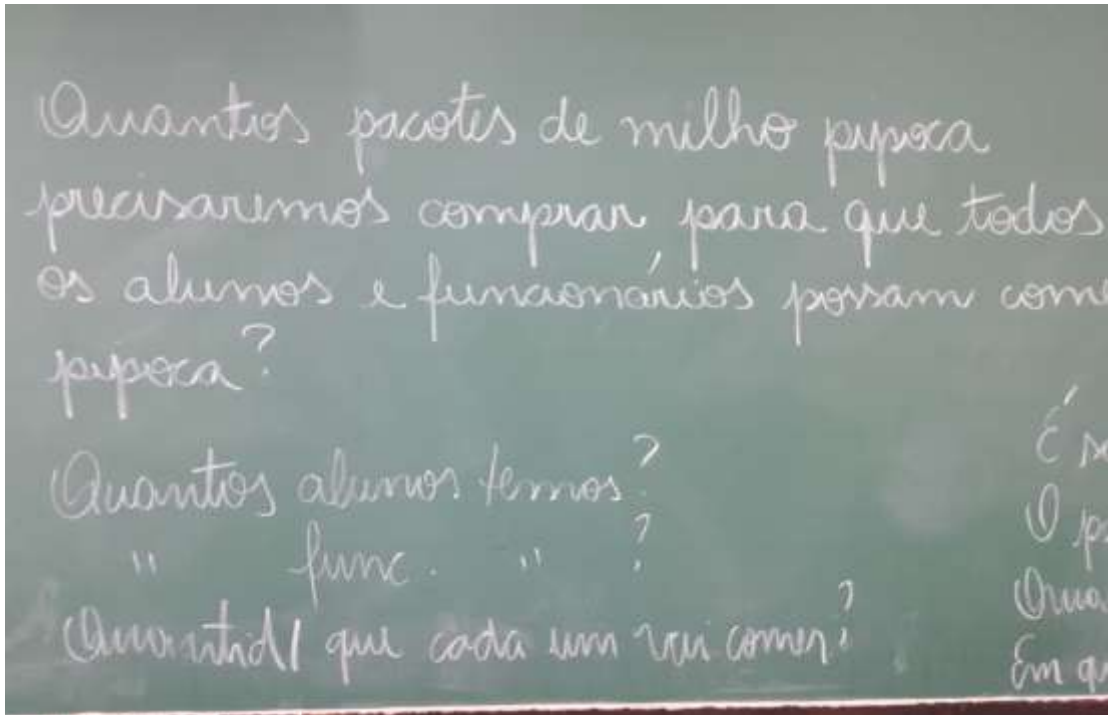 Quantos pacotes de milho pipoca
precisaremos comprar para que todos
os alunos e funcionários possam come
pipoca?
Quantos alunos temos?
" func. " ?
Quantid/ que cada um vai comer?
É
O
Em